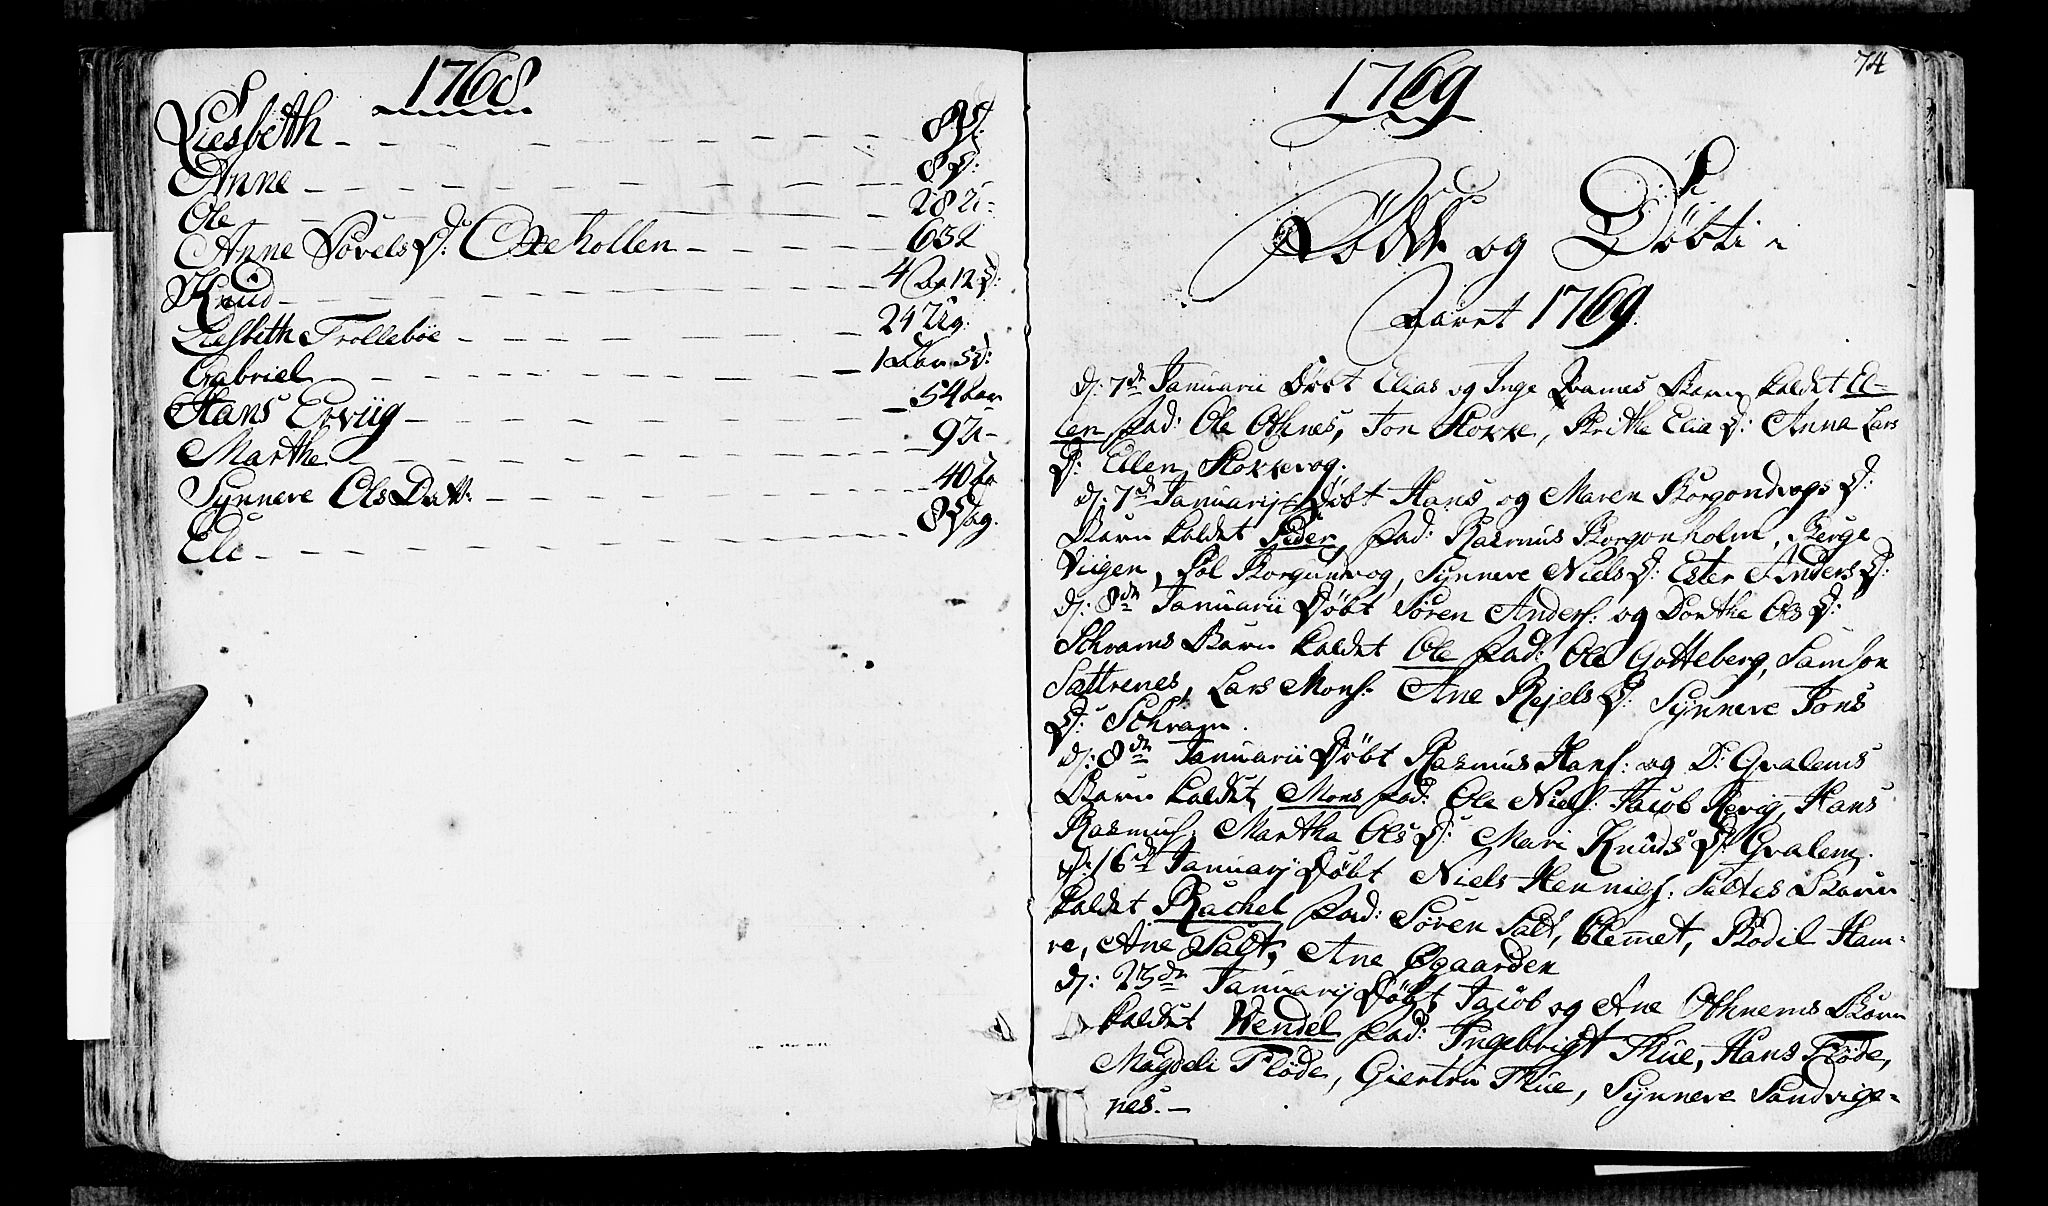 1768
Liesbeth 8 D:
Anne 8 D:
Ole 28 U:
Anne Povels D: Oxekollen 63 A
Knud 4 Aar 12 D:
Liesbeth Trollebøe 24 Ug:
Gabriel 1 Aar 5 D:
Hans Ervüg 54 Aar
Marthe 9 U:
Synneve Ols Datt: 40 Aar
Eli 8 Dag.
74
1769
Fødde og Døbte i
Aaret 1769.
D: 7de Januarii Døbt Elias og Inge Qvames Barn kaldet El-
len Fad: Ole Othnes, Jon Stokke, Brithe Elia D: Anna Lars
D: Ellen Stokkevog.
D: 7de Januarij Døbt Hans og Maren Borgondvogs D:
Barn kaldet Peder, Fad: Rasmus Borgonholm, Berge
Viigen, Pol Borgundvog, Synneve Niels D: Ester Anders D:
D: 8de Januarii Døbt Søren Anders: og Dorthe Ols D:
Schrams Barn kaldet Ole Fad: Ole Gotteberg, Samson
Sattrenes, Lars Mons: Ane Rejels D: Synneve Jons
D: Schram.
D: 8de Januarii Døbt Rasmus Hans: og D: Qvalems
Barn kaldet Mons Fad: Ole Niels: Jacob Revig, Hans
Rasmus: Martha Ols D: Mari Knuds D: Qvalem.
D: 16de Januarij Døbt Niels Hennigs: Saltes Barn
kaldet Rachel Fad: Søren Salt, Clemmet, Bodil Ham-
re, Ane Salt, Ane Øgaarden
D: 23de Januarij Døbt Jacob og Ane Othnems Barn
kaldet Wendel Fad: Ingebrigt Thue, Hans Fløde,
Magdeli Fløde, Giertru Thue, Synneve Sandvige-
nes.-